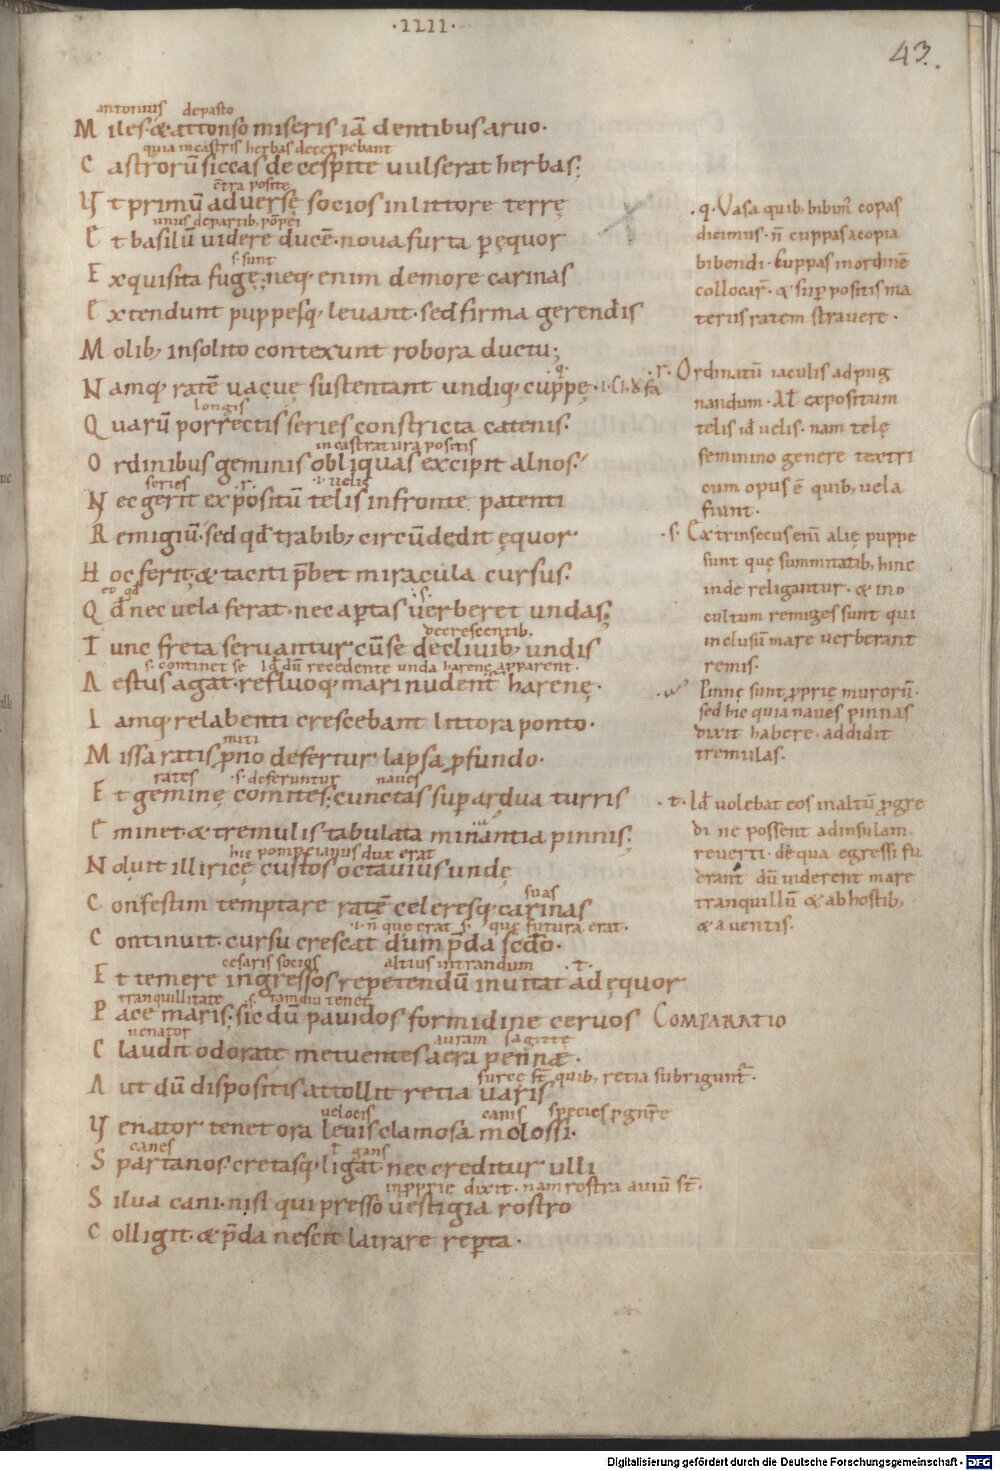 ·IIII·
43.
antonius depasto
Miles·& attonso miseris iā dentibus aruo·
quia in castris herbas decerpebant
Castrorū siccas de cespite uulserat herbas;
ētra posite
Vt primū aduersę socios in littore terrę
unus de partib, pōpei
Et basilū uidere ducē·noua furta p ęquor
s· sunt
Exquisita fugę; neq· enim de more carinas
Extendunt puppesq, leuant·sed firma gerendis
Molib, insolito contexunt robora ductu;
·q·
Namq, ratē uacuę sustentant undiq, cuppę·
longis
Quarū porrectis series constricta catenis·
in castratura positis
Ordinibus geminis obliquas excipit alnos·
series ·r· ·i· uelis
Nec gerit expositū telis in fronte patenti
Remigiū·sed qd trabib, circūdedit ęquor·
Hoc ferit·& taciti p̄bet miracula cursus·
eo qd ·s·
Qd nec uela ferat·nec apertas uerberet undas;
decrescentib,
Tunc freta seruantur cū se decliuib, undis
s· continet se id dū recedente unda harenę apparent·
Aestus agat·refluoq, mari nudent harenę·
Iamq, relabenti crescebant littora ponto·
miti
Missa ratis p̄no defertur lapsa profundo·
rates ·s· deferuntur naues
Et geminę comites; cunctas sup ardua turris
·u·
Eminet·& tremulis tabulata minantia pinnis;
hic pompeianus dux erat
Noluit illiricę custos octauius undę
suas
Confestim temptare ratē celeresq, carinas
·i· n̄ que erat s· que futura erat·
Continuit·cursu crescat dum p̄da scdo·
cesaris socios altius intrandum ·t·
Et temere ingressos repetendū inuitat ad ęquor
tranquillitate s· tamdiu tenet
Pace maris; sic dū pauidos formidine ceruos COMPARATIO
uenator auram sagittę
Claudit odoratę metuentes aera pennæ·
furcę st quib, retia subrigunt·
Aut dū dispositis attollit retia uaris
uelocis canis species p gn̄re
Venator tenet ora leuis clamosa molossi·
canes gans
Spartanos·cretasq, ligat·nec creditur ulli
inpprie dixit·nam rostra auiū st·
Silua cani·nisi qui presso uestigia rostro
Colligit·& p̄da nescit latrare reperta·
·q· Vasa quib, bibim copas
dicimus·n̄ cuppas a copia
bibendi·Cuppas in ordinē
collocar·& sup positis ma
teriis ratem strauere·
·r· Ordinatū iaculis ad pug
nandum·Al expositum
telis id uelis·nam telę
feminino genere textri
cum opus ē quib, uela
fiunt·
·s· Extrinsecus eni alie puppe
sunt quę summitatib, hinc
inde religantur·& in o
cultum remiges sunt qui
inclusū mare uerberant
remis·
·u· Pinnę sunt pprie murorū·
sed hic quia naues pinnas
dixit habere·addidit
tremulas·
·t· Id uolebat eos in altū pgre
di ne possent ad insulam
reuerti·de qua egressi fu
erant dū uiderent mare
tranquillū & ab hostib,
& a uentis·
Digitalisierung gefördert durch die Deutsche Forschungsgemeinschaft - DFG